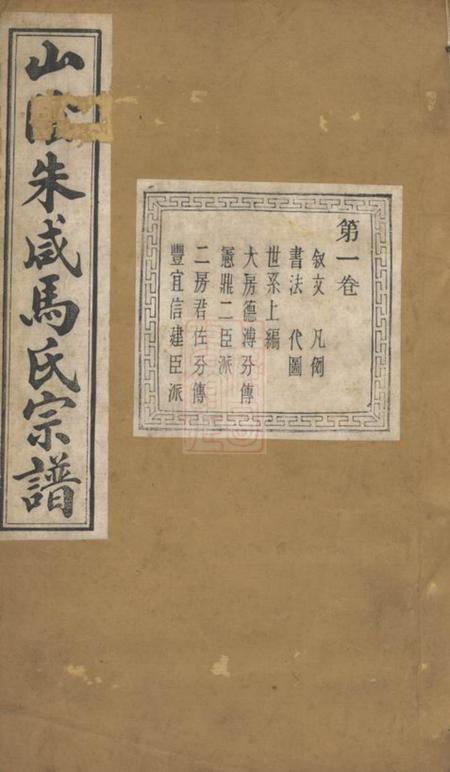 山陰朱咸馬氏宗譜
第一卷
叙文 凡例
書法 代圖
世系上編
大房德溥分傳
憲鼎二臣派
二房君佐分傳
豐宜信建臣派